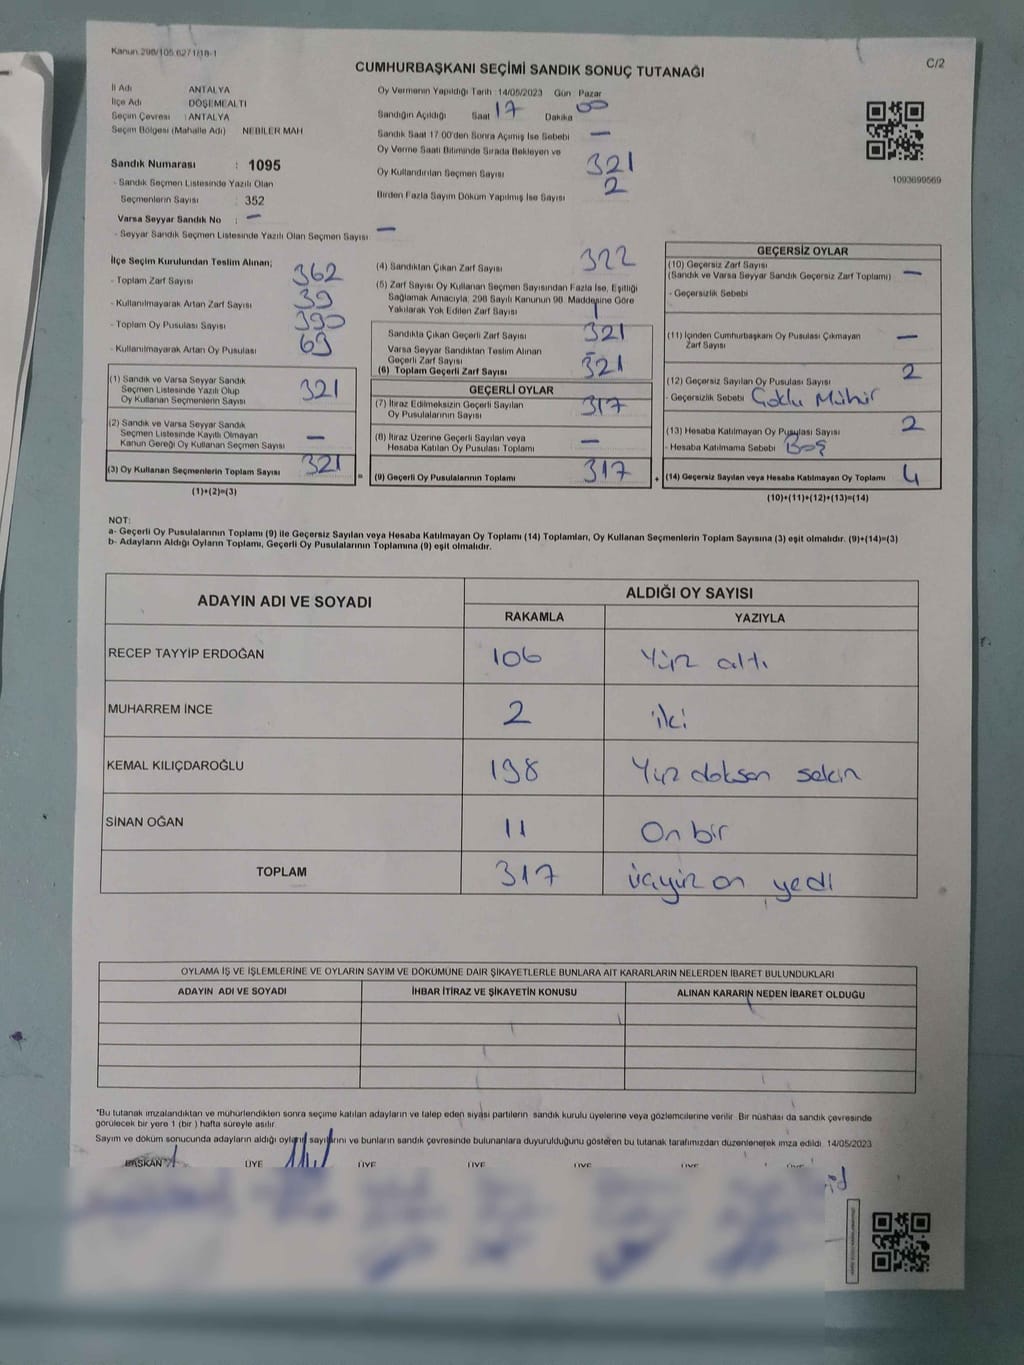 Kanun 298/105 6271/18-1
C/2
CUMHURBAŞKANI SEÇİMİ SANDIK SONUÇ TUTANAĞI
İl Adı ANTALYA
İlçe Adı DÖŞEMEALTI
Seçim Çevresi : ANTALYA
Seçim Bölgesi (Mahalle Adı) NEBİLER MAH
Sandık Numarası : 1095
- Sandık Seçmen Listesinde Yazılı Olan
Seçmenlerin Sayısı : 352
Varsa Seyyar Sandık No : –
- Seyyar Sandık Seçmen Listesinde Yazılı Olan Seçmen Sayısı –
Oy Vermenin Yapıldığı Tarih : 14/05/2023 Gün Pazar
Sandığın Açıldığı Saat 17 Dakika 00
Sandık Saat 17:00'den Sonra Açımış İse Sebebi –
Oy Verme Saati Bitiminde Sırada Bekleyen ve
Oy Kullandırılan Seçmen Sayısı 321
Birden Fazla Sayım Döküm Yapılmış İse Sayısı 2
1093699569
İlçe Seçim Kurulundan Teslim Alınan;
- Toplam Zarf Sayısı 362
- Kullanılmayarak Artan Zarf Sayısı 39
- Toplam Oy Pusulası Sayısı 390
- Kullanılmayarak Artan Oy Pusulası 69
(1) Sandık ve Varsa Seyyar Sandık
Seçmen Listesinde Yazılı Olup
Oy Kullanan Seçmenlerin Sayısı 321
(2) Sandık ve Varsa Seyyar Sandık
Seçmen Listesinde Kayıtlı Olmayan
Kanun Gereği Oy Kullanan Seçmen Sayısı –
(3) Oy Kullanan Seçmenlerin Toplam Sayısı 321
(1)+(2)=(3)
(4) Sandıktan Çıkan Zarf Sayısı 322
(5) Zarf Sayısı Oy Kullanan Seçmen Sayısından Fazla İse, Eşitliği
Sağlamak Amacıyla, 298 Sayılı Kanunun 98. Maddesine Göre
Yakılarak Yok Edilen Zarf Sayısı 1
Sandıkta Çıkan Geçerli Zarf Sayısı 321
Varsa Seyyar Sandıktan Teslim Alınan
Geçerli Zarf Sayısı –
(6) Toplam Geçerli Zarf Sayısı 321
GEÇERLİ OYLAR
(7) İtiraz Edilmeksizin Geçerli Sayılan
Oy Pusulalarının Sayısı 317
(8) İtiraz Üzerine Geçerli Sayılan veya
Hesaba Katılan Oy Pusulası Toplamı –
= (9) Geçerli Oy Pusulalarının Toplamı 317 +
GEÇERSİZ OYLAR
(10) Geçersiz Zarf Sayısı
(Sandık ve Varsa Seyyar Sandık Geçersiz Zarf Toplamı) –
- Geçersizlik Sebebi
(11) İçinden Cumhurbaşkanı Oy Pusulası Çıkmayan
Zarf Sayısı –
(12) Geçersiz Sayılan Oy Pusulası Sayısı 2
- Geçersizlik Sebebi Çoklu Mühür
(13) Hesaba Katılmayan Oy Pusulası Sayısı 2
- Hesaba Katılmama Sebebi Boş
(14) Geçersiz Sayılan veya Hesaba Katılmayan Oy Toplamı 4
(10)+(11)+(12)+(13)=(14)
NOT:
a- Geçerli Oy Pusulalarının Toplamı (9) ile Geçersiz Sayılan veya Hesaba Katılmayan Oy Toplamı (14) Toplamları, Oy Kullanan Seçmenlerin Toplam Sayısına (3) eşit olmalıdır. (9)+(14)=(3)
b- Adayların Aldığı Oyların Toplamı, Geçerli Oy Pusulalarının Toplamına (9) eşit olmalıdır.
ADAYIN ADI VE SOYADI
ALDIĞI OY SAYISI
RAKAMLA YAZIYLA
RECEP TAYYİP ERDOĞAN 106 Yüz altı
MUHARREM İNCE 2 iki
KEMAL KILIÇDAROĞLU 198 Yüz doksan sekiz
SİNAN OĞAN 11 On bir
TOPLAM 317 üçyüz on yedi
OYLAMA İŞ VE İŞLEMLERİNE VE OYLARIN SAYIM VE DÖKÜMÜNE DAİR ŞİKAYETLERLE BUNLARA AİT KARARLARIN NELERDEN İBARET BULUNDUKLARI
ADAYIN ADI VE SOYADI İHBAR İTİRAZ VE ŞİKAYETİN KONUSU ALINAN KARARIN NEDEN İBARET OLDUĞU
*Bu tutanak imzalandıktan ve mühürlendikten sonra seçime katılan adayların ve talep eden siyasi partilerin sandık kurulu üyelerine veya gözlemcilerine verilir. Bir nüshası da sandık çevresinde
görülecek bir yere 1 (bir ) hafta süreyle asılır.
Sayım ve döküm sonucunda adayların aldığı oyların sayılarını ve bunların sandık çevresinde bulunanlara duyurulduğunu gösteren bu tutanak tarafımızdan düzenlenerek imza edildi. 14/05/2023
BAŞKAN ÜYE ÜYE ÜYE ÜYE ÜYE ÜYE